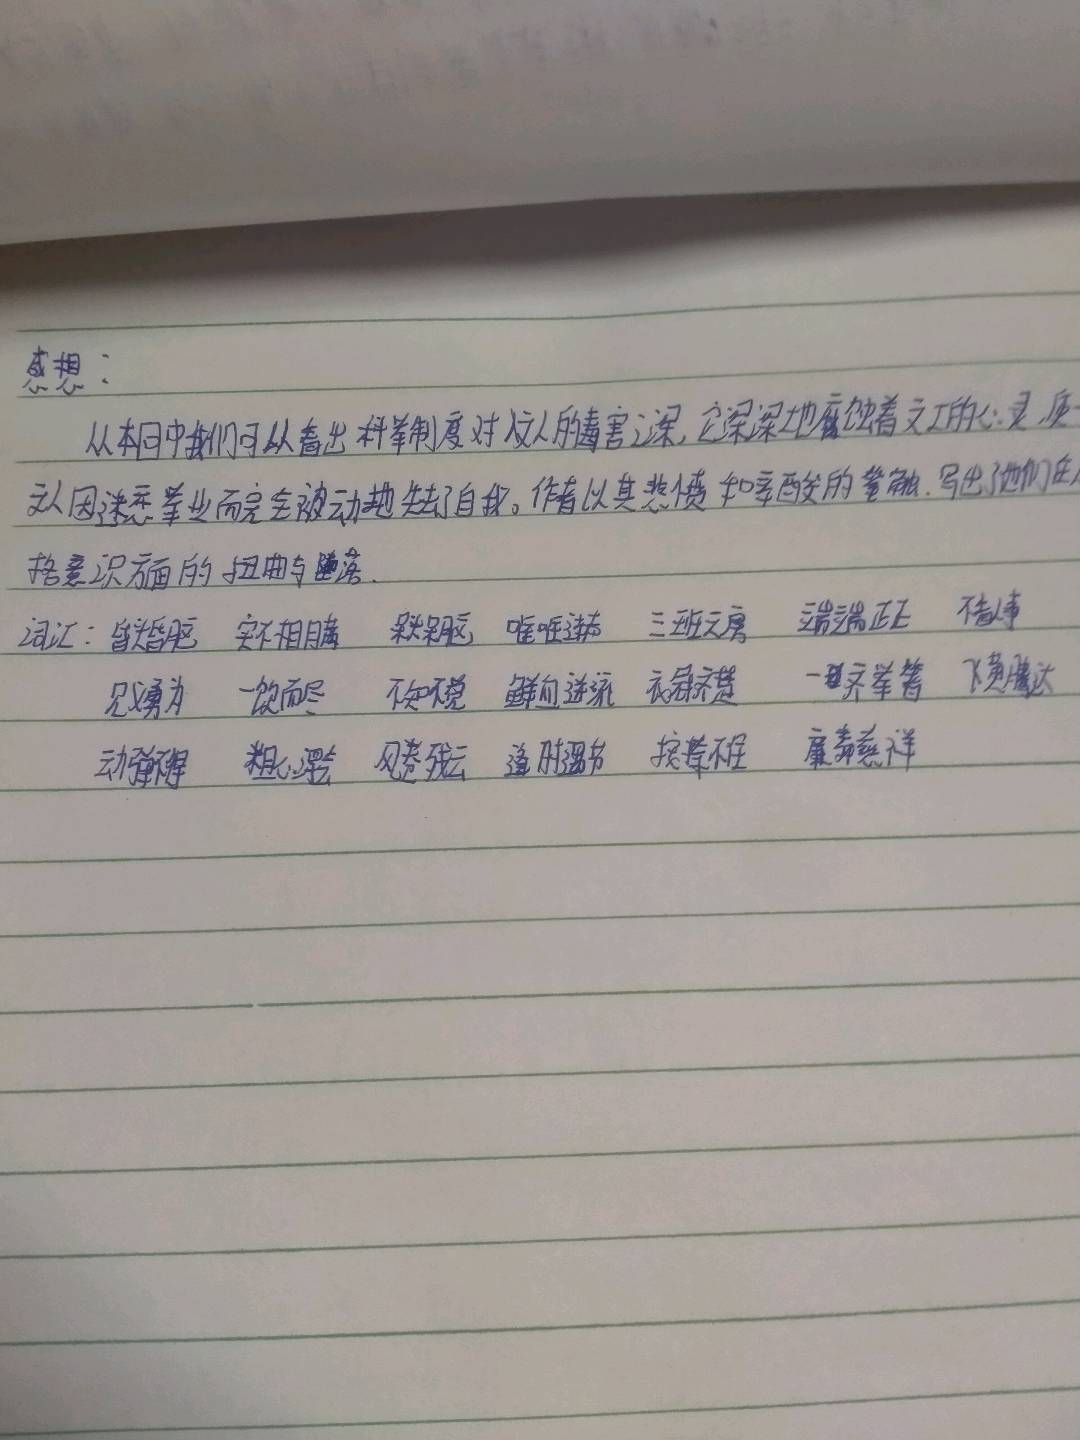 感想：
从本回中我们可以看出科举制度对文人的毒害之深，它深深地腐蚀着文人的心灵，
文人因迷恋举业而完全被动地失去了自我。作者以其悲愤和辛酸的笔触，写出了他们在人
格意识方面的扭曲与堕落.
词汇：昏头昏脑 实不相瞒 呆头呆脑 唯唯连声 三班六房 端端正正 不省人事
见义勇为 一饮而尽 不知不觉 鲜血迸流 衣冠齐楚 一齐举箸 飞黄腾达
动弹不得 粗心浮气 风卷残云 逢时遇节 挨着不住 廉筹慈祥